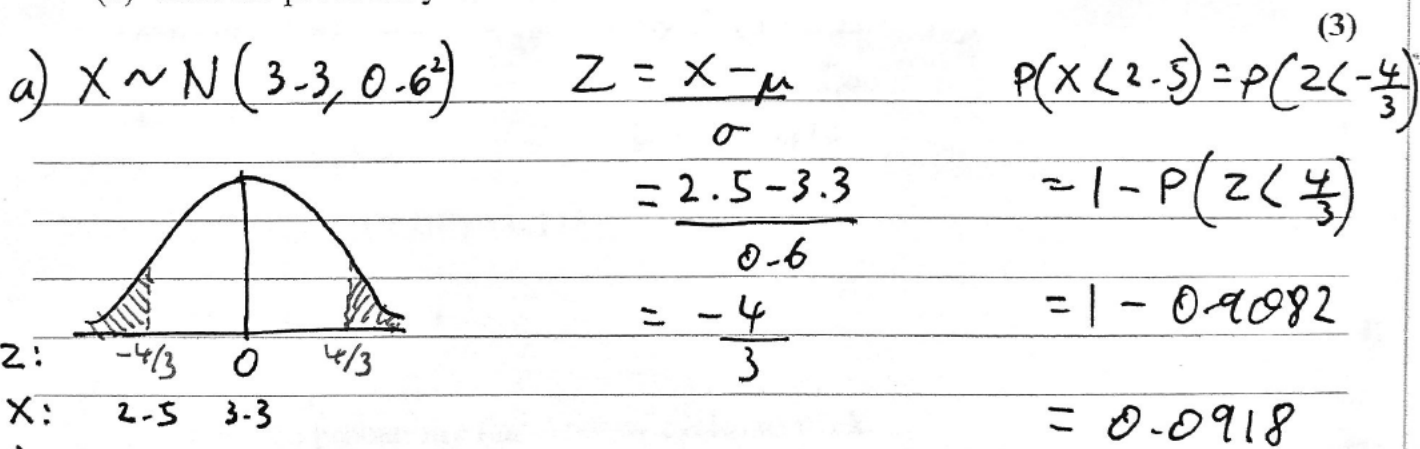 (3)
a) X ~ N(3.3, 0.6²)
Z = (X - μ)/σ
= (2.5 - 3.3)/0.6
= -4/3
P(X < 2.5) = P(Z < -4/3)
= 1 - P(Z < 4/3)
= 1 - 0.9082
= 0.0918
Z: -4/3 0 4/3
X: 2.5 3.3